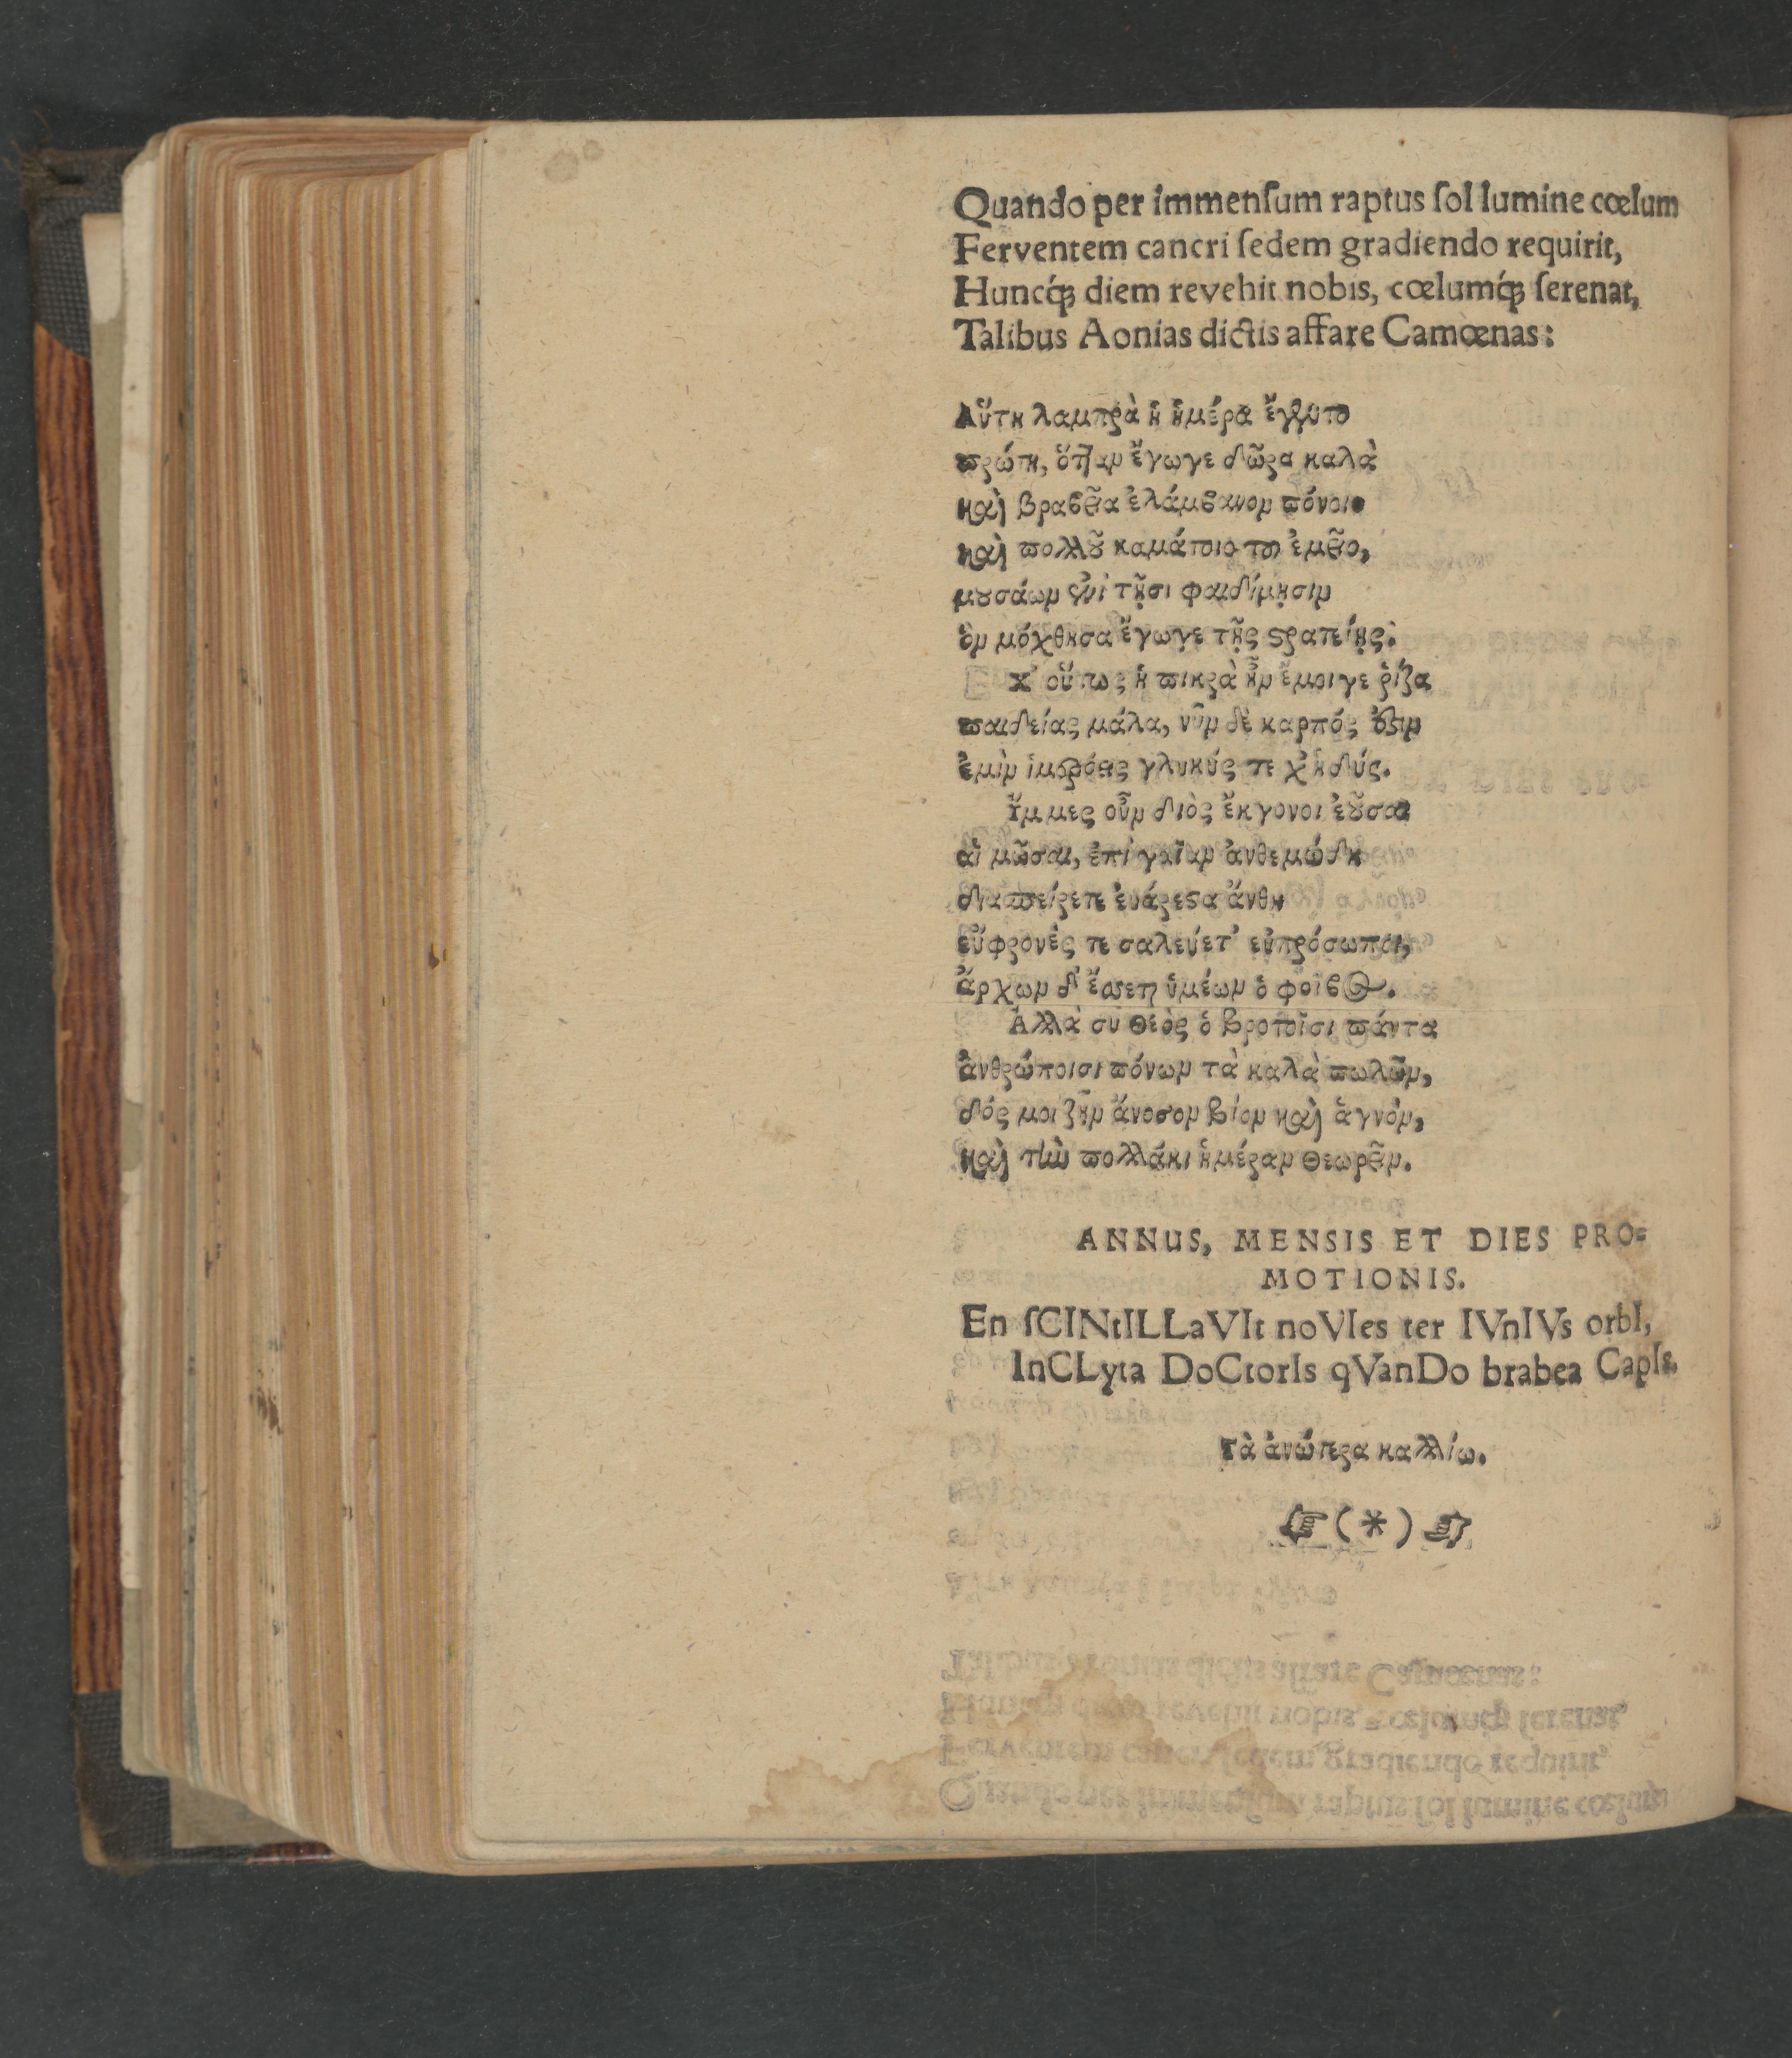 Quando per immenſum raptus ſol lumine cœlum
Ferventem cancri ſedem gradiendo requirit,
Huncq́ꝫ diem revehit nobis, cœlumq́ꝫ ſerenat,
Talibus Aonias dictis affare Camœnas:
Αὕτη λαμπρὰ ἡ ἡμέρα ἔγγυτο
πρώτη, ὅταν ἔγωγε δῶρα καλὰ
καὶ βραβεῖα ἐλάμβανον πόνοιο
καὶ πολλοῦ καμάτοιο τοι ἐμεῖο,
μουσάων ἐνὶ τῇσι φαιδίμῃσιν
ὃν μόχθησα ἔγωγε τῇς στρατείῃς.
χ' οὕτως ἡ πικρὰ ἦν ἔμοιγε ῥίζα
παιδείας μάλα, νῦν δὲ καρπός ἐστιν
ἐμὶν ἱμερόεις γλυκύς τε χ' ἡδύς.
Υ̓́μμες οὖν διὸς ἔκγονοι ἐοῦσαι
αἱ μῶσαι, ἐπὶ γαῖαν ἀνθεμώδη
διασπείρετε ἐυάρεστα ἄνθη
εὔφρονές τε σαλεύετ' εὐπρόσωποι,
ἄρχων δ' ἔσσεται ὑμέων ὁ φοῖβος.
Ἀλλὰ συ θεὸς ὁ βροτοῖσι πάντα
ἀνθρώποισι πόνων τὰ καλὰ πωλῶν,
δός μοι ζῆν ἄνοσον βίον καὶ ἁγνὸν,
καὶ τὴν πολλάκι ἡμέραν θεωρεῖν.
ANNUS, MENSIS ET DIES PRO=
MOTIONIS.
En ſCINtILLaVIt noVIes ter IVnIVs orbI,
InCLyta DoCtorIs qVanDo brabea CapIs.
τὰ ἀνώτερα καλλίω.
☞ (*) ☜